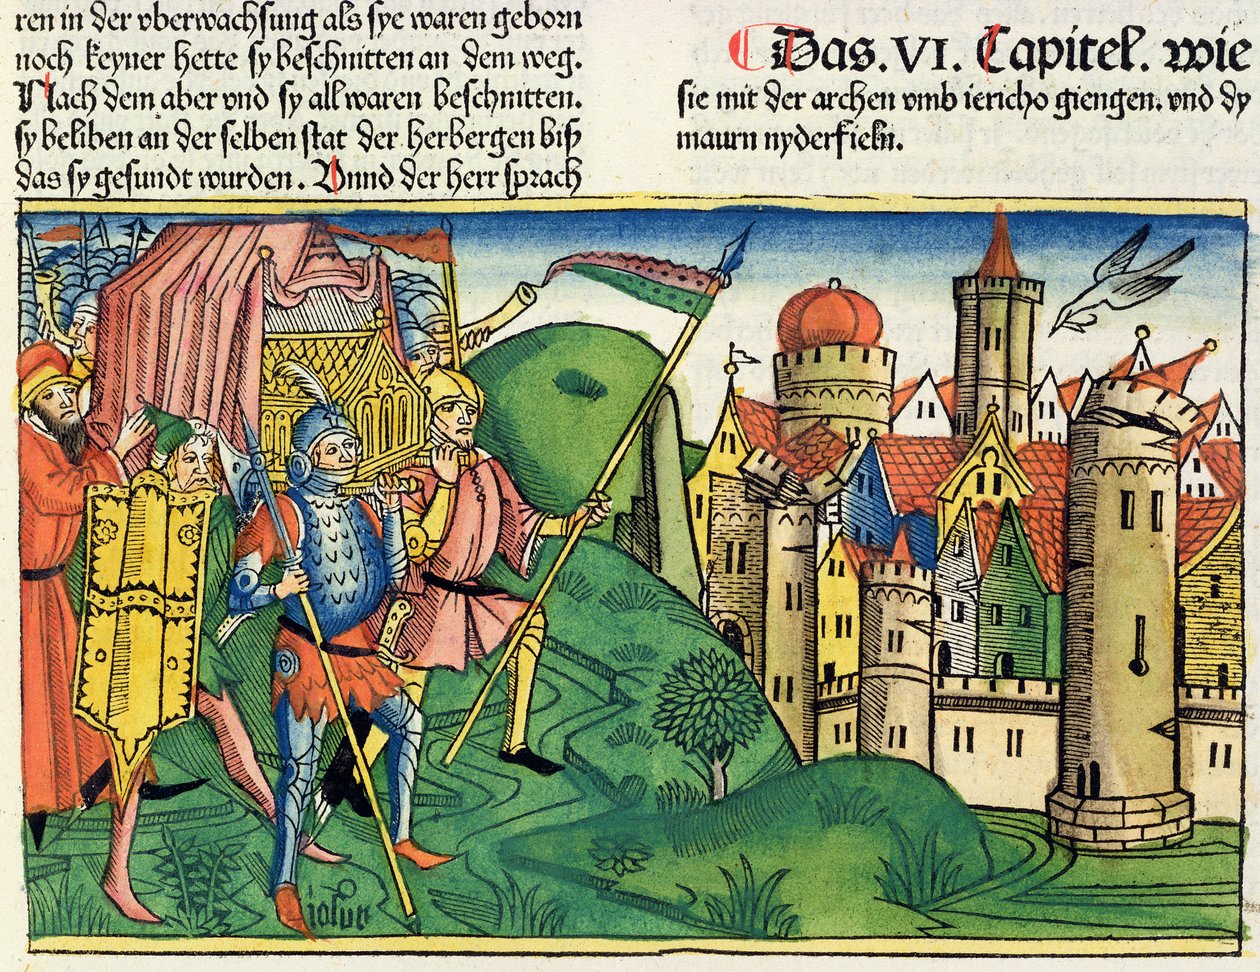 ren in der vberwachsung als sye waren geborn
noch keyner hette sy beschnitten an dem weg.
Nach dem aber vnd sy all waren beschnitten.
sy beliben an der selben stat der herbergen biß
das sy gesundt wurden. Vnnd der herr sprach
Das .VI. Capitel. wie
sie mit der archen vmb iericho giengen. vnd dy
maurn nyderfieln.
iosue